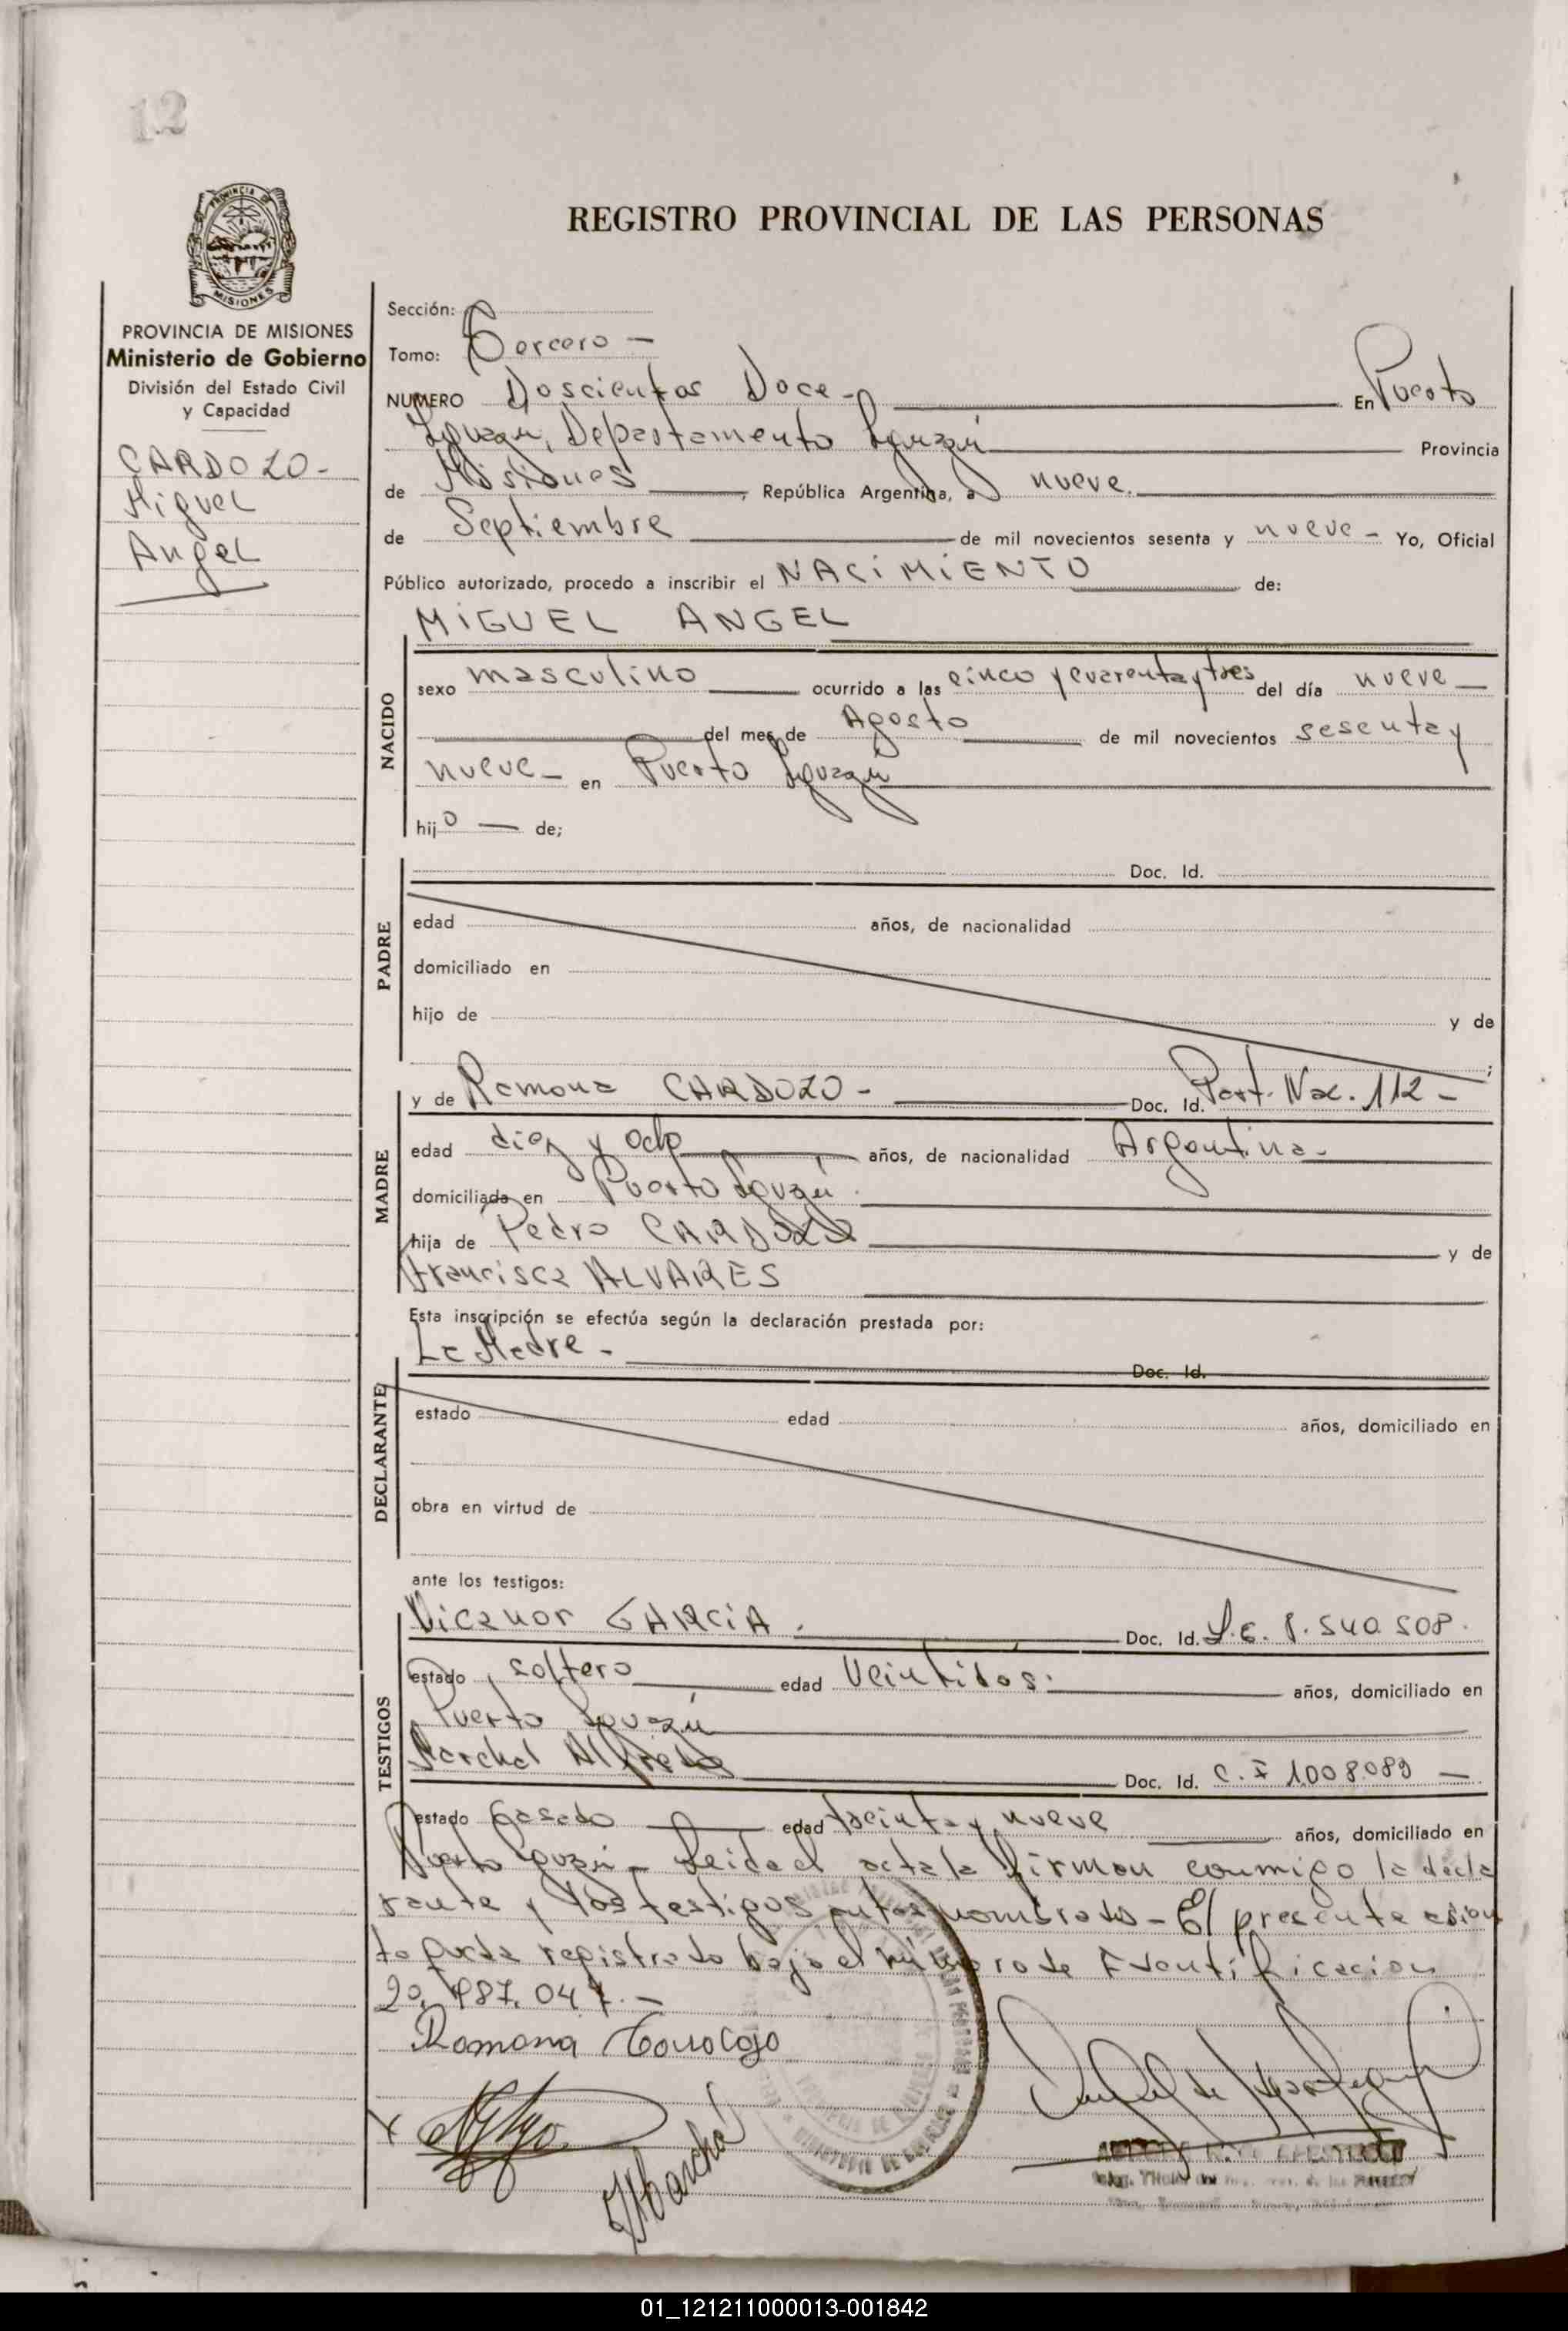 12
PROVINCIA DE
MISIONES
REGISTRO PROVINCIAL DE LAS PERSONAS
PROVINCIA DE MISIONES
Ministerio de Gobierno
División del Estado Civil
y Capacidad
CARDOZO-
Miguel
Angel
Sección:
Tomo: Tercero -
NUMERO Doscientos Doce - En Puerto
Iguazú, Departamento Iguazú Provincia
de Misiones, República Argentina, a nueve.
de Septiembre de mil novecientos sesenta y nueve - Yo, Oficial
Público autorizado, procedo a inscribir el NACIMIENTO de:
MIGUEL ANGEL
NACIDO
sexo masculino ocurrido a las cinco y cuarenta y tres del día nueve -
del mes de Agosto de mil novecientos sesenta y
nueve - en Puerto Iguazú
hijo - de;
PADRE
Doc. Id.
edad años, de nacionalidad
domiciliado en
hijo de y de
;
MADRE
y de Ramona CARDOZO - Doc. Id. Part. Nac. 112 -
edad diez y ocho años, de nacionalidad Argentina -
domiciliada en Puerto Iguazú.
hija de Pedro CARDOZO y de
Francisca ALVARES
Esta inscripción se efectúa según la declaración prestada por:
La Madre - Doc. Id.
DECLARANTE
estado edad años, domiciliado en
obra en virtud de
ante los testigos:
TESTIGOS
Nicanor GARCIA. Doc. Id. L.E. 8.540.508.
estado soltero edad Veintidós. años, domiciliado en
Puerto Iguazú
Alfredo Doc. Id. C.I 1.008.089 -
estado Casado edad treinta y nueve años, domiciliado en
Puerto Iguazú - Leida el acta la firman conmigo la decla
rante y los testigos antes nombrados - El presente asien
to queda registrado bajo el número de Identificacion
20.987.047. -
Ramona
01_121211000013-001842